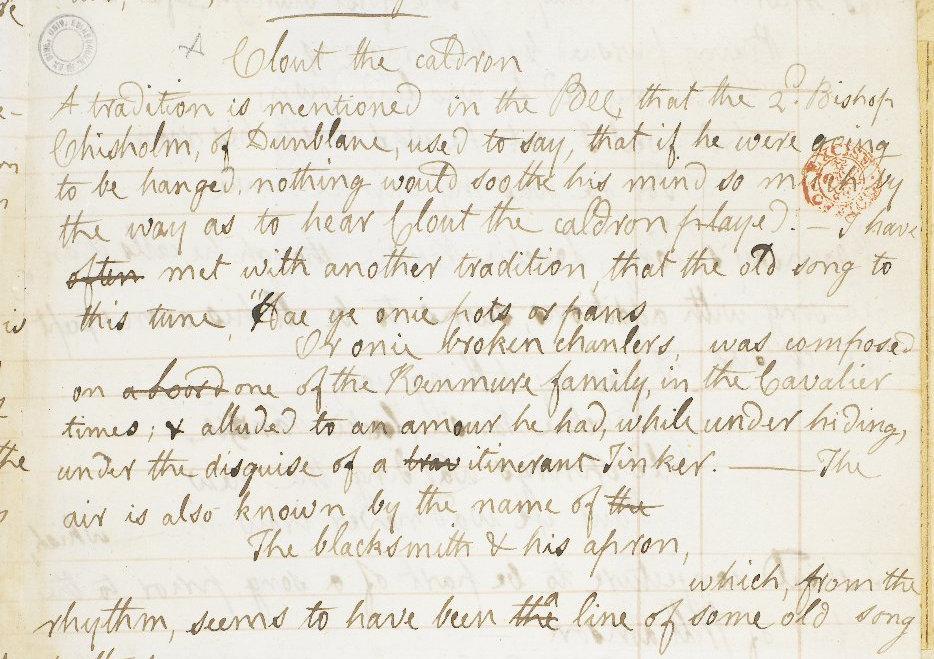 Clout the caldron
A tradition is mentioned in the Bee, that the 2d. Bishop
Chisholm, of Dunblane, used to say, that if he were going
to be hanged, nothing would soothe his mind so much by
the way as to hear Clout the caldron played. — I have
often met with another tradition, that the old song to
this tune, "Hae ye onie pots or pans,
Or onie broken chanlers, was composed
on a board one of the Kenmure family, in the Cavalier
times; & alluded to an amour he had, while under hiding,
under the disguise of a trav itinerant Tinker. — The
air is also known by the name of the
The blacksmith & his apron,
which, from the
rhythm, seems to have been the a line of some old song